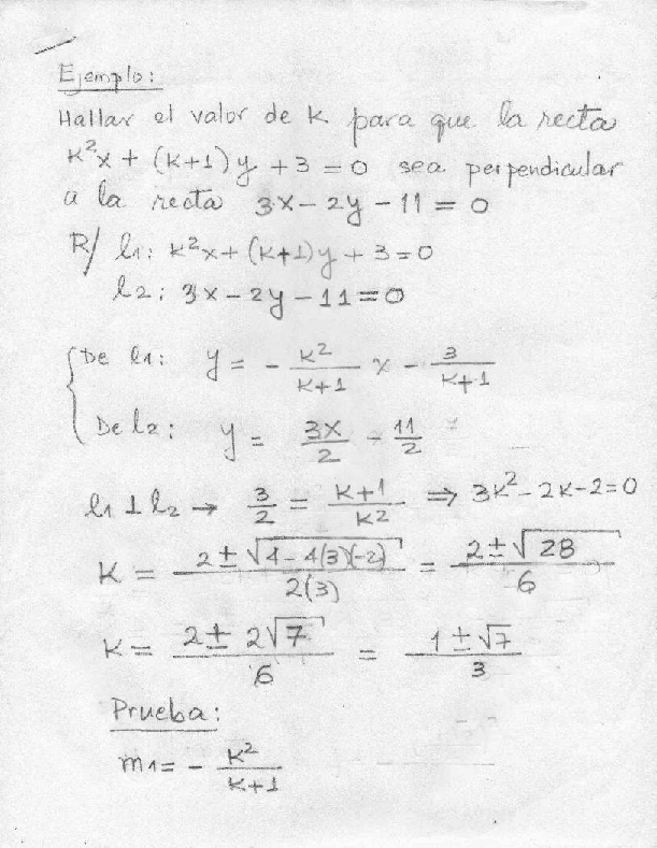 Ejemplo:
Hallar el valor de k para que la recta
k²x + (k+1)y + 3 = 0 sea perpendicular
a la recta 3x - 2y - 11 = 0
R/ l1: k²x + (k+1)y + 3 = 0
l2: 3x - 2y - 11 = 0
De l1: y = - k²/(k+1) x - 3/(k+1)
De l2: y = 3x/2 - 11/2
l1 ⊥ l2 → 3/2 = (k+1)/k² ⇒ 3k² - 2k - 2 = 0
K = (2 ± √(4 - 4(3)(-2)))/(2(3)) = (2 ± √28)/6
K = (2 ± 2√7)/6 = (1 ± √7)/3
Prueba:
m1 = - k²/(k+1)